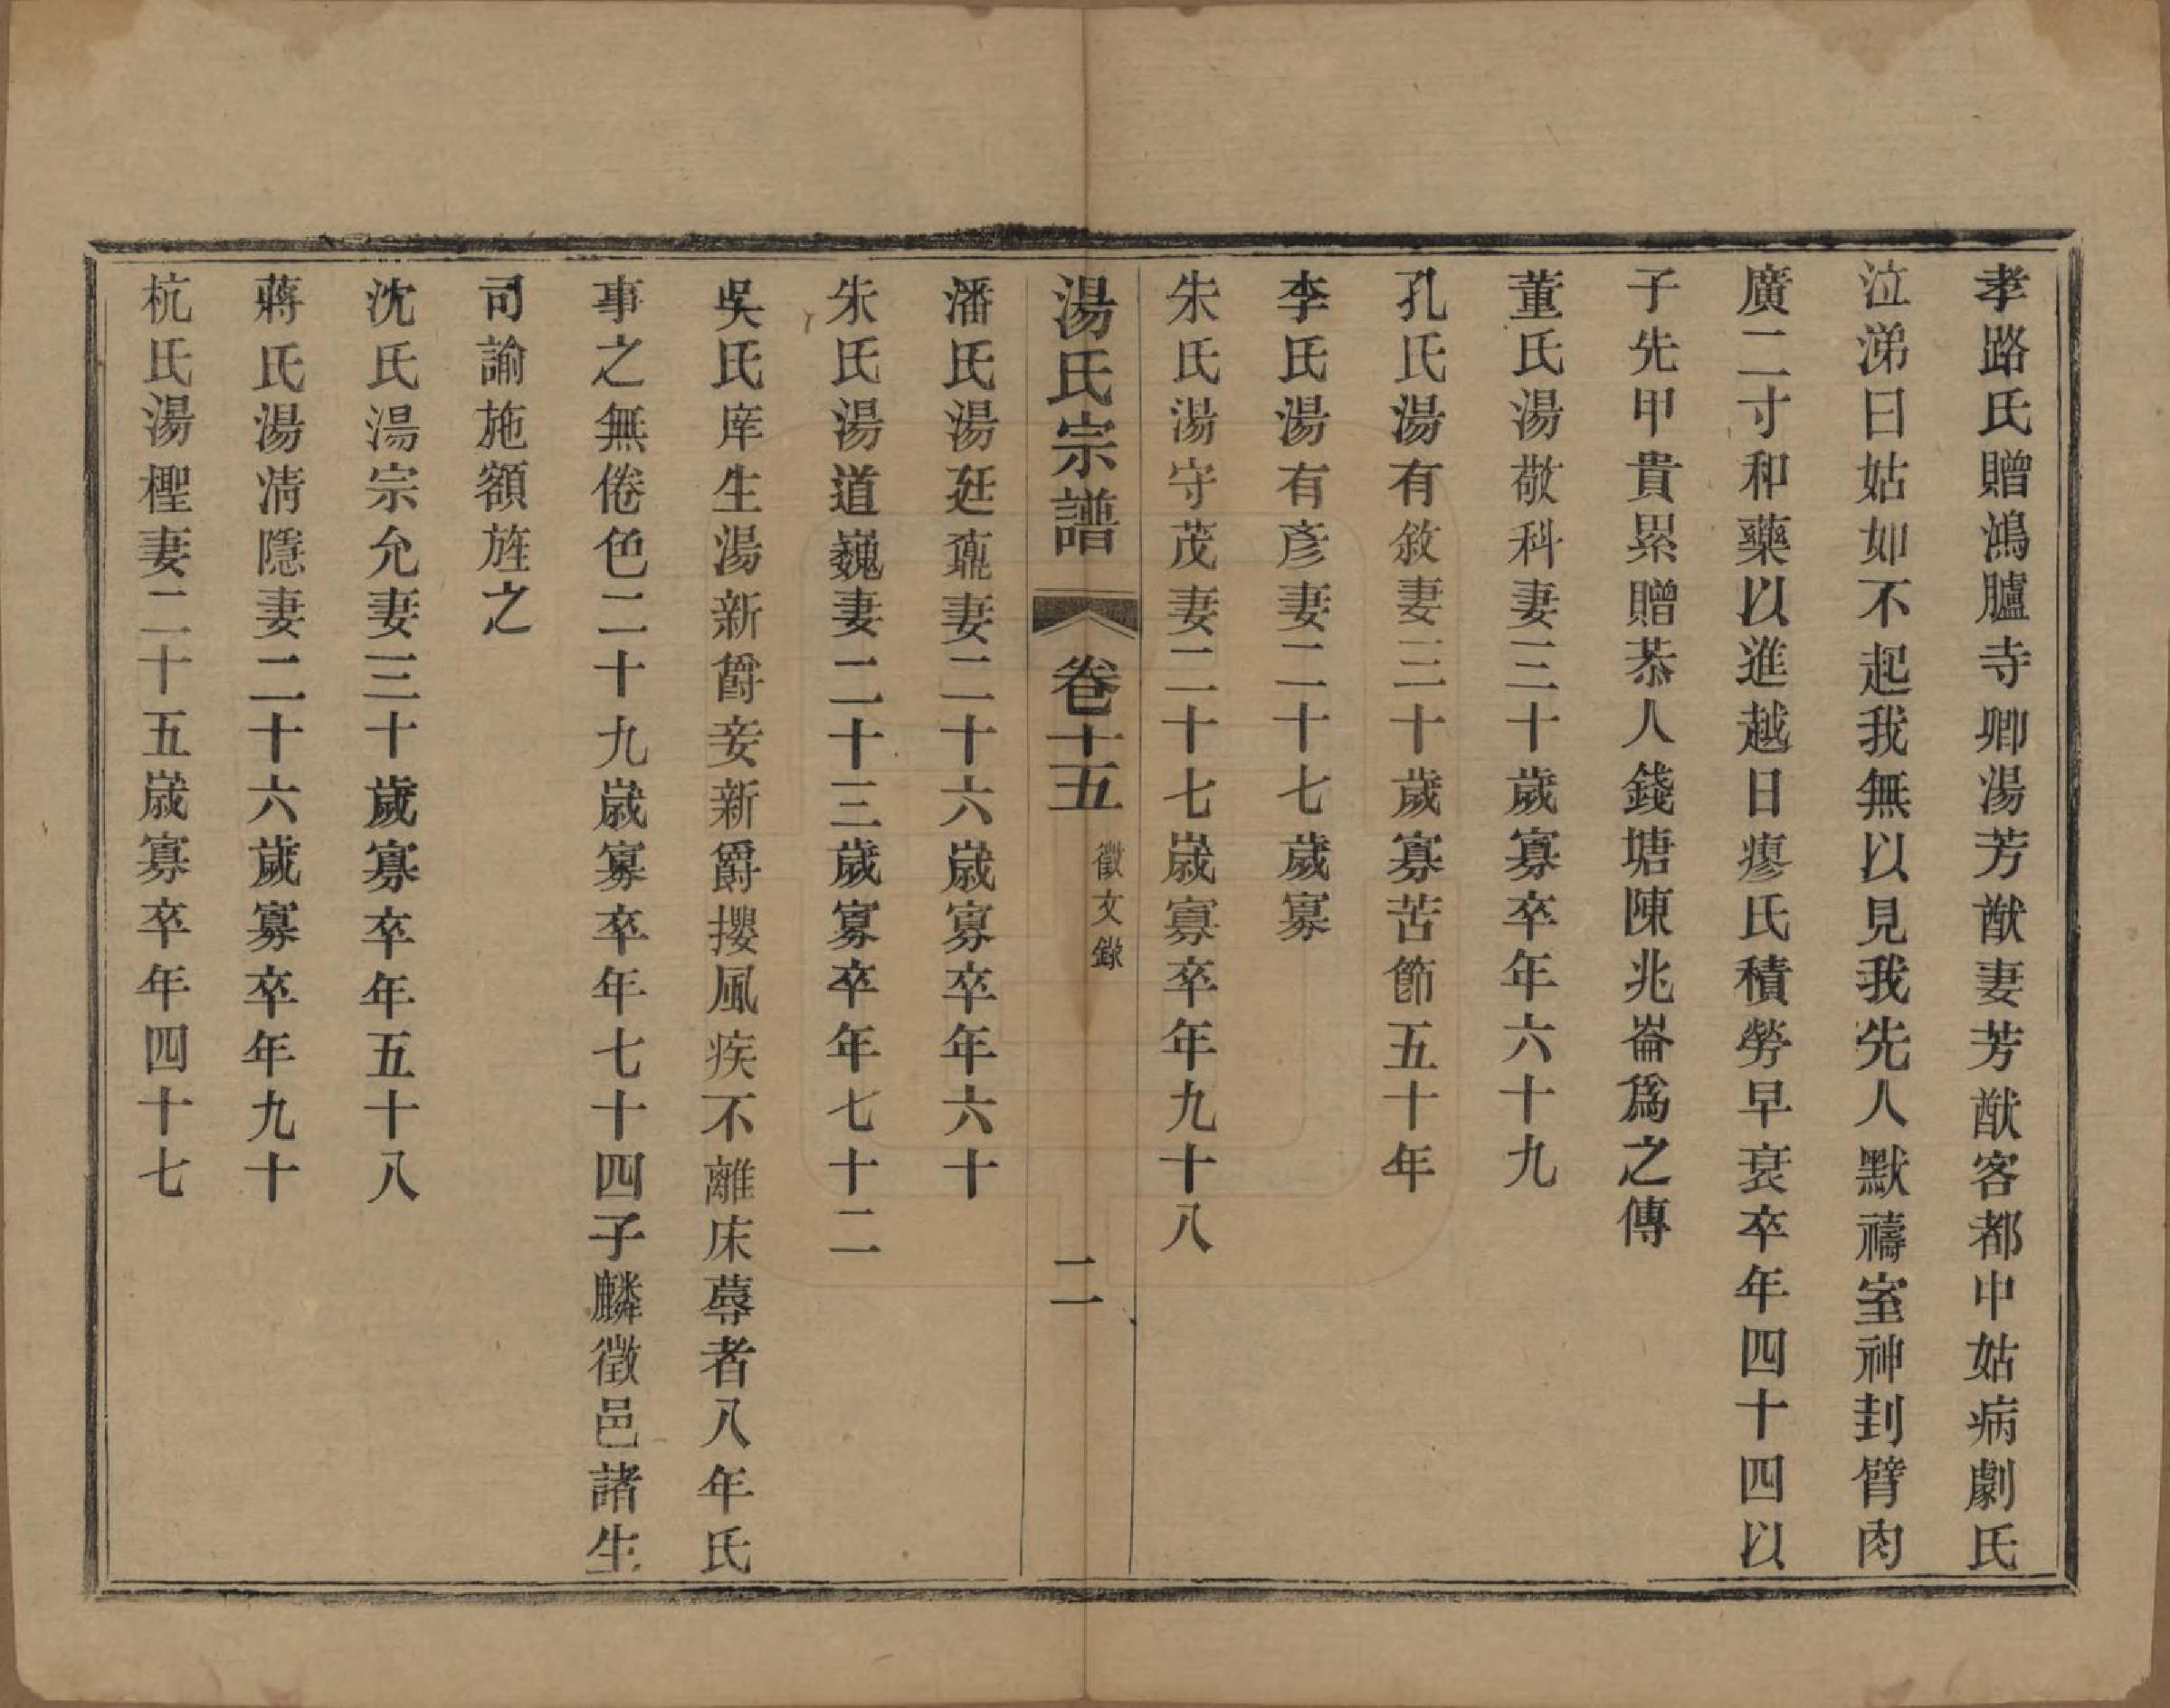 孝路氏贈鴻臚寺卿湯芳猷妻芳猷客都中姑病劇氏
泣涕曰姑如不起我無以見我先人默禱室神封臂肉
廣二寸和藥以進越日瘳氏積勞早衰卒年四十四以
子先甲貴累贈恭人錢塘陳兆崙爲之傳
董氏湯敬科妻三十歲寡卒年六十九
孔氏湯有敘妻三十歲寡苦節五十年
李氏湯有彥妻二十七歲寡
朱氏湯守茂妻二十七歲寡卒年九十八
湯氏宗譜 卷十五 徵文錄 二
潘氏湯廷鼐妻二十六歲寡卒年六十
朱氏湯道巍妻二十三歲寡卒年七十二
吳氏庠生湯新爵妾新爵攖風疾不離床蓐者八年氏
事之無倦色二十九歲寡卒年七十四子麟徵邑諸生
司諭施額旌之
沈氏湯宗允妻三十歲寡卒年五十八
蔣氏湯清隱妻二十六歲寡卒年九十
杭氏湯檉妻二十五歲寡卒年四十七